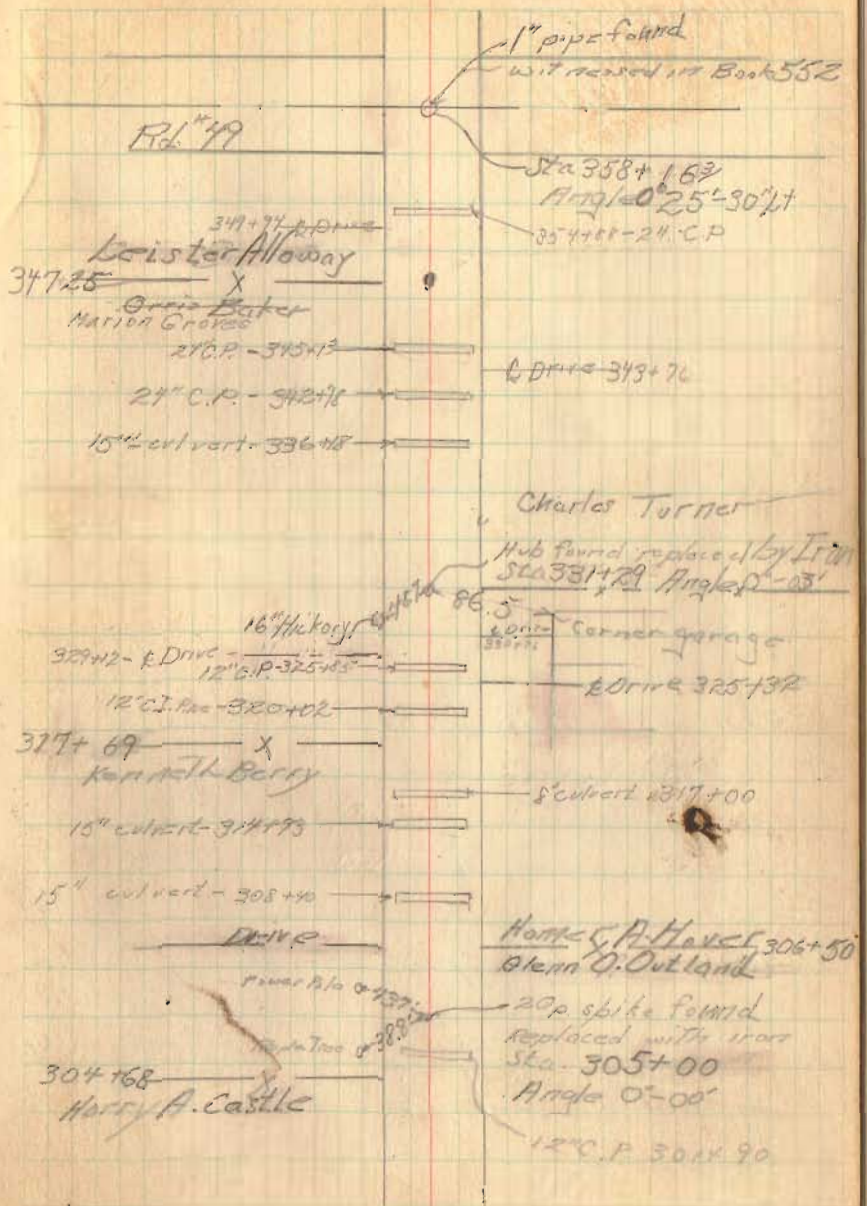 1" pipe found
witnessed in Book 552
Rd. #49
Sta 358+16³
Angle 0°25'-30" Lt
349+94 ℄ Drive
354+88-24" C.P
Leister Alloway
347+25 X
Orrin Baker
Marion Groves
C.P. - 345+13
℄ Drive 343+76
24" C.P. - 342+78
15" culvert - 336+18
Charles Turner
Hub found replaced by Iron
Sta 331+29 Angle 0°-03'
16" Hickory
86.5
Corner garage
329+12 - ℄ Drive
12" C.P. - 325+85
℄ Drive 325+32
12" C.I. Pipe - 320+02
X
Kenneth Berry
8" culvert 317+00
15" culvert - 314+93
15" culvert - 308+40
Drive
A. Hover 306+50
Glenn O. Outland
Power Pole
20p. spike found
38.8
Replaced with iron
Tree
Sta. 305+00
304+68 X
Angle 0°-00'
Harry A. Castle
12" C.P.